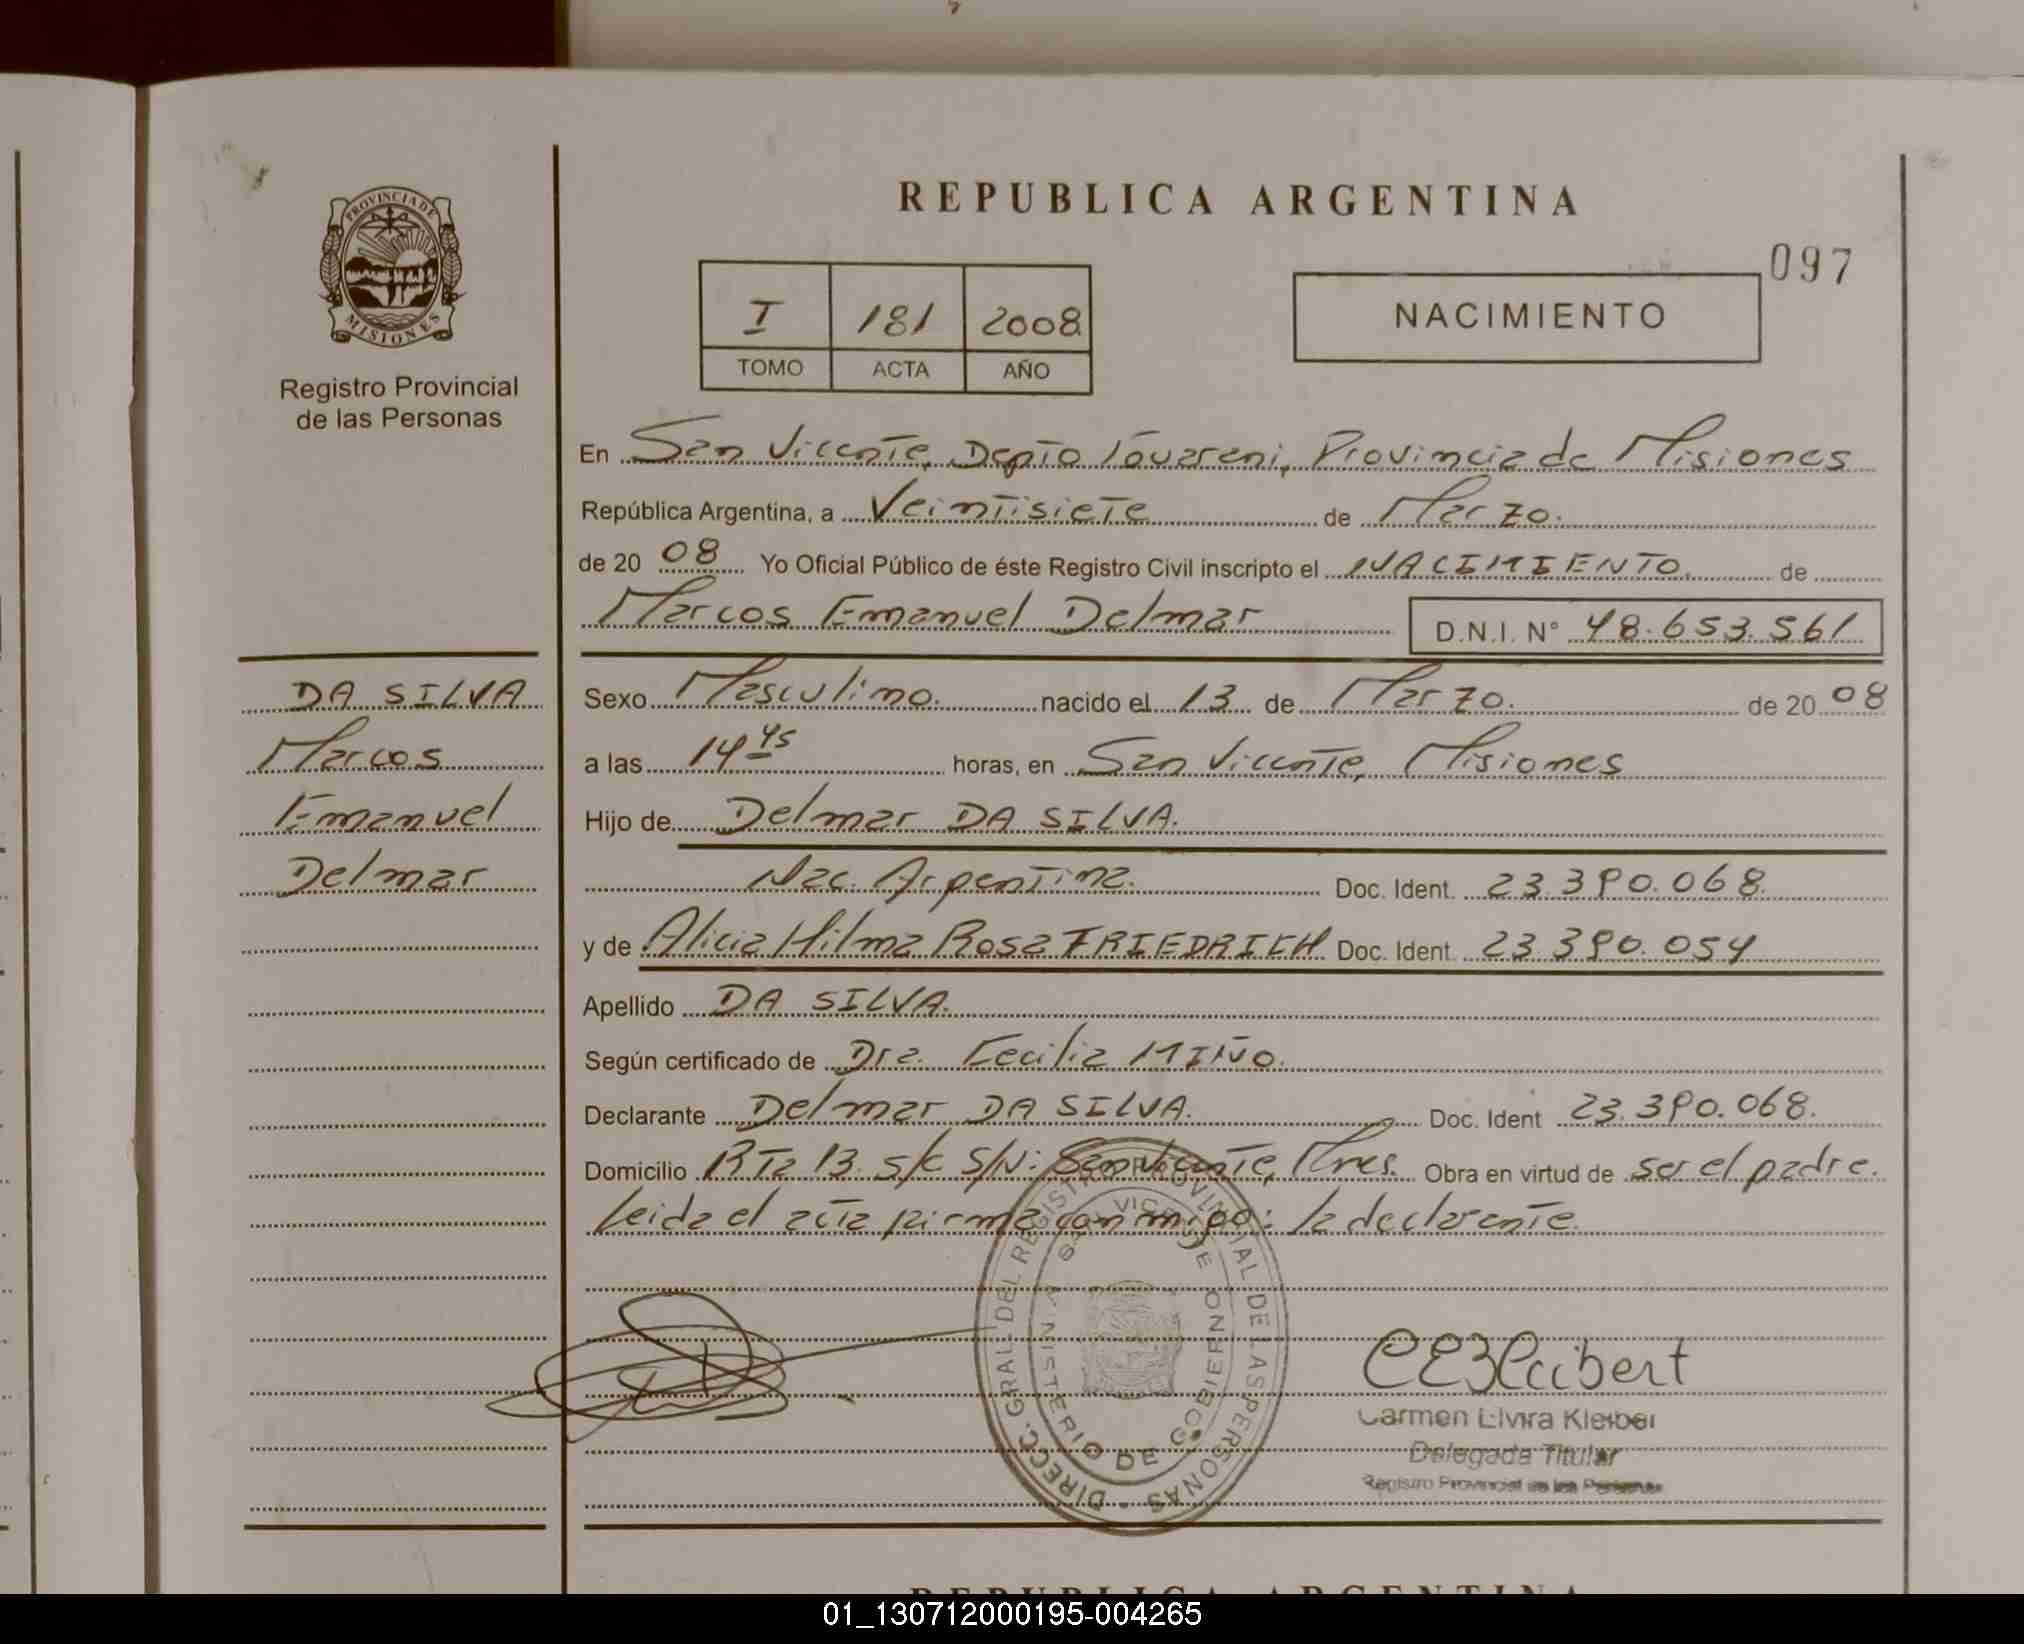 PROVINCIA DE
MISIONES
Registro Provincial
de las Personas
DA SILVA
Marcos
Emanuel
Delmar
REPUBLICA ARGENTINA
097
I 181 2008
TOMO ACTA AÑO
NACIMIENTO
En San Vicente, Depto Guarani, Provincia de Misiones
República Argentina, a Veintisiete de Marzo.
de 20 08 Yo Oficial Público de éste Registro Civil inscripto el NACIMIENTO de
Marcos Emanuel Delmar D.N.I. N° 48.653.561
Sexo Masculino. nacido el 13 de Marzo. de 20 08
a las 14 45 horas, en San Vicente, Misiones
Hijo de Delmar DA SILVA.
Nac. Argentina. Doc. Ident. 23.390.068.
y de Alicia Hilma Rosa FRIEDRICH Doc. Ident. 23.390.054
Apellido DA SILVA.
Según certificado de Dra. Cecilia MIÑO.
Declarante Delmar DA SILVA. Doc. Ident 23.390.068.
Domicilio RTa 13. s/c S/N: San Vicente, Mnes. Obra en virtud de ser el padre.
Leida el acta firma conmigo: la declarante.
DIRECC. GRAL. DEL REGISTRO PROVINCIAL DE LAS PERSONAS
SAN VICENTE
MINISTERIO DE GOBIERNO
Carmen Elvira Kleiber
Delegada Titular
Registro Provincial de las Personas
REPUBLICA ARGENTINA
01_130712000195-004265